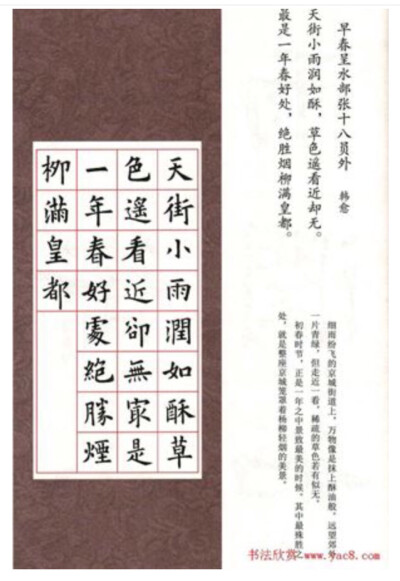 早春呈水部张十八员外 韩愈
天街小雨润如酥，草色遥看近却无。
最是一年春好处，绝胜烟柳满皇都。
细雨纷飞的京城街道上，万物像是抹上酥油般，远望郊外
一片青绿，但走近一看，稀疏的草色若有似无。
初春时节，正是一年之中景致最美的时候，其中最殊胜之
处，就是整座京城笼罩着杨柳轻烟的美景。
天街小雨潤如酥草
色遙看近卻無㝡是
一年春好處絕勝煙
柳滿皇都
书法欣赏 www.yac8.com